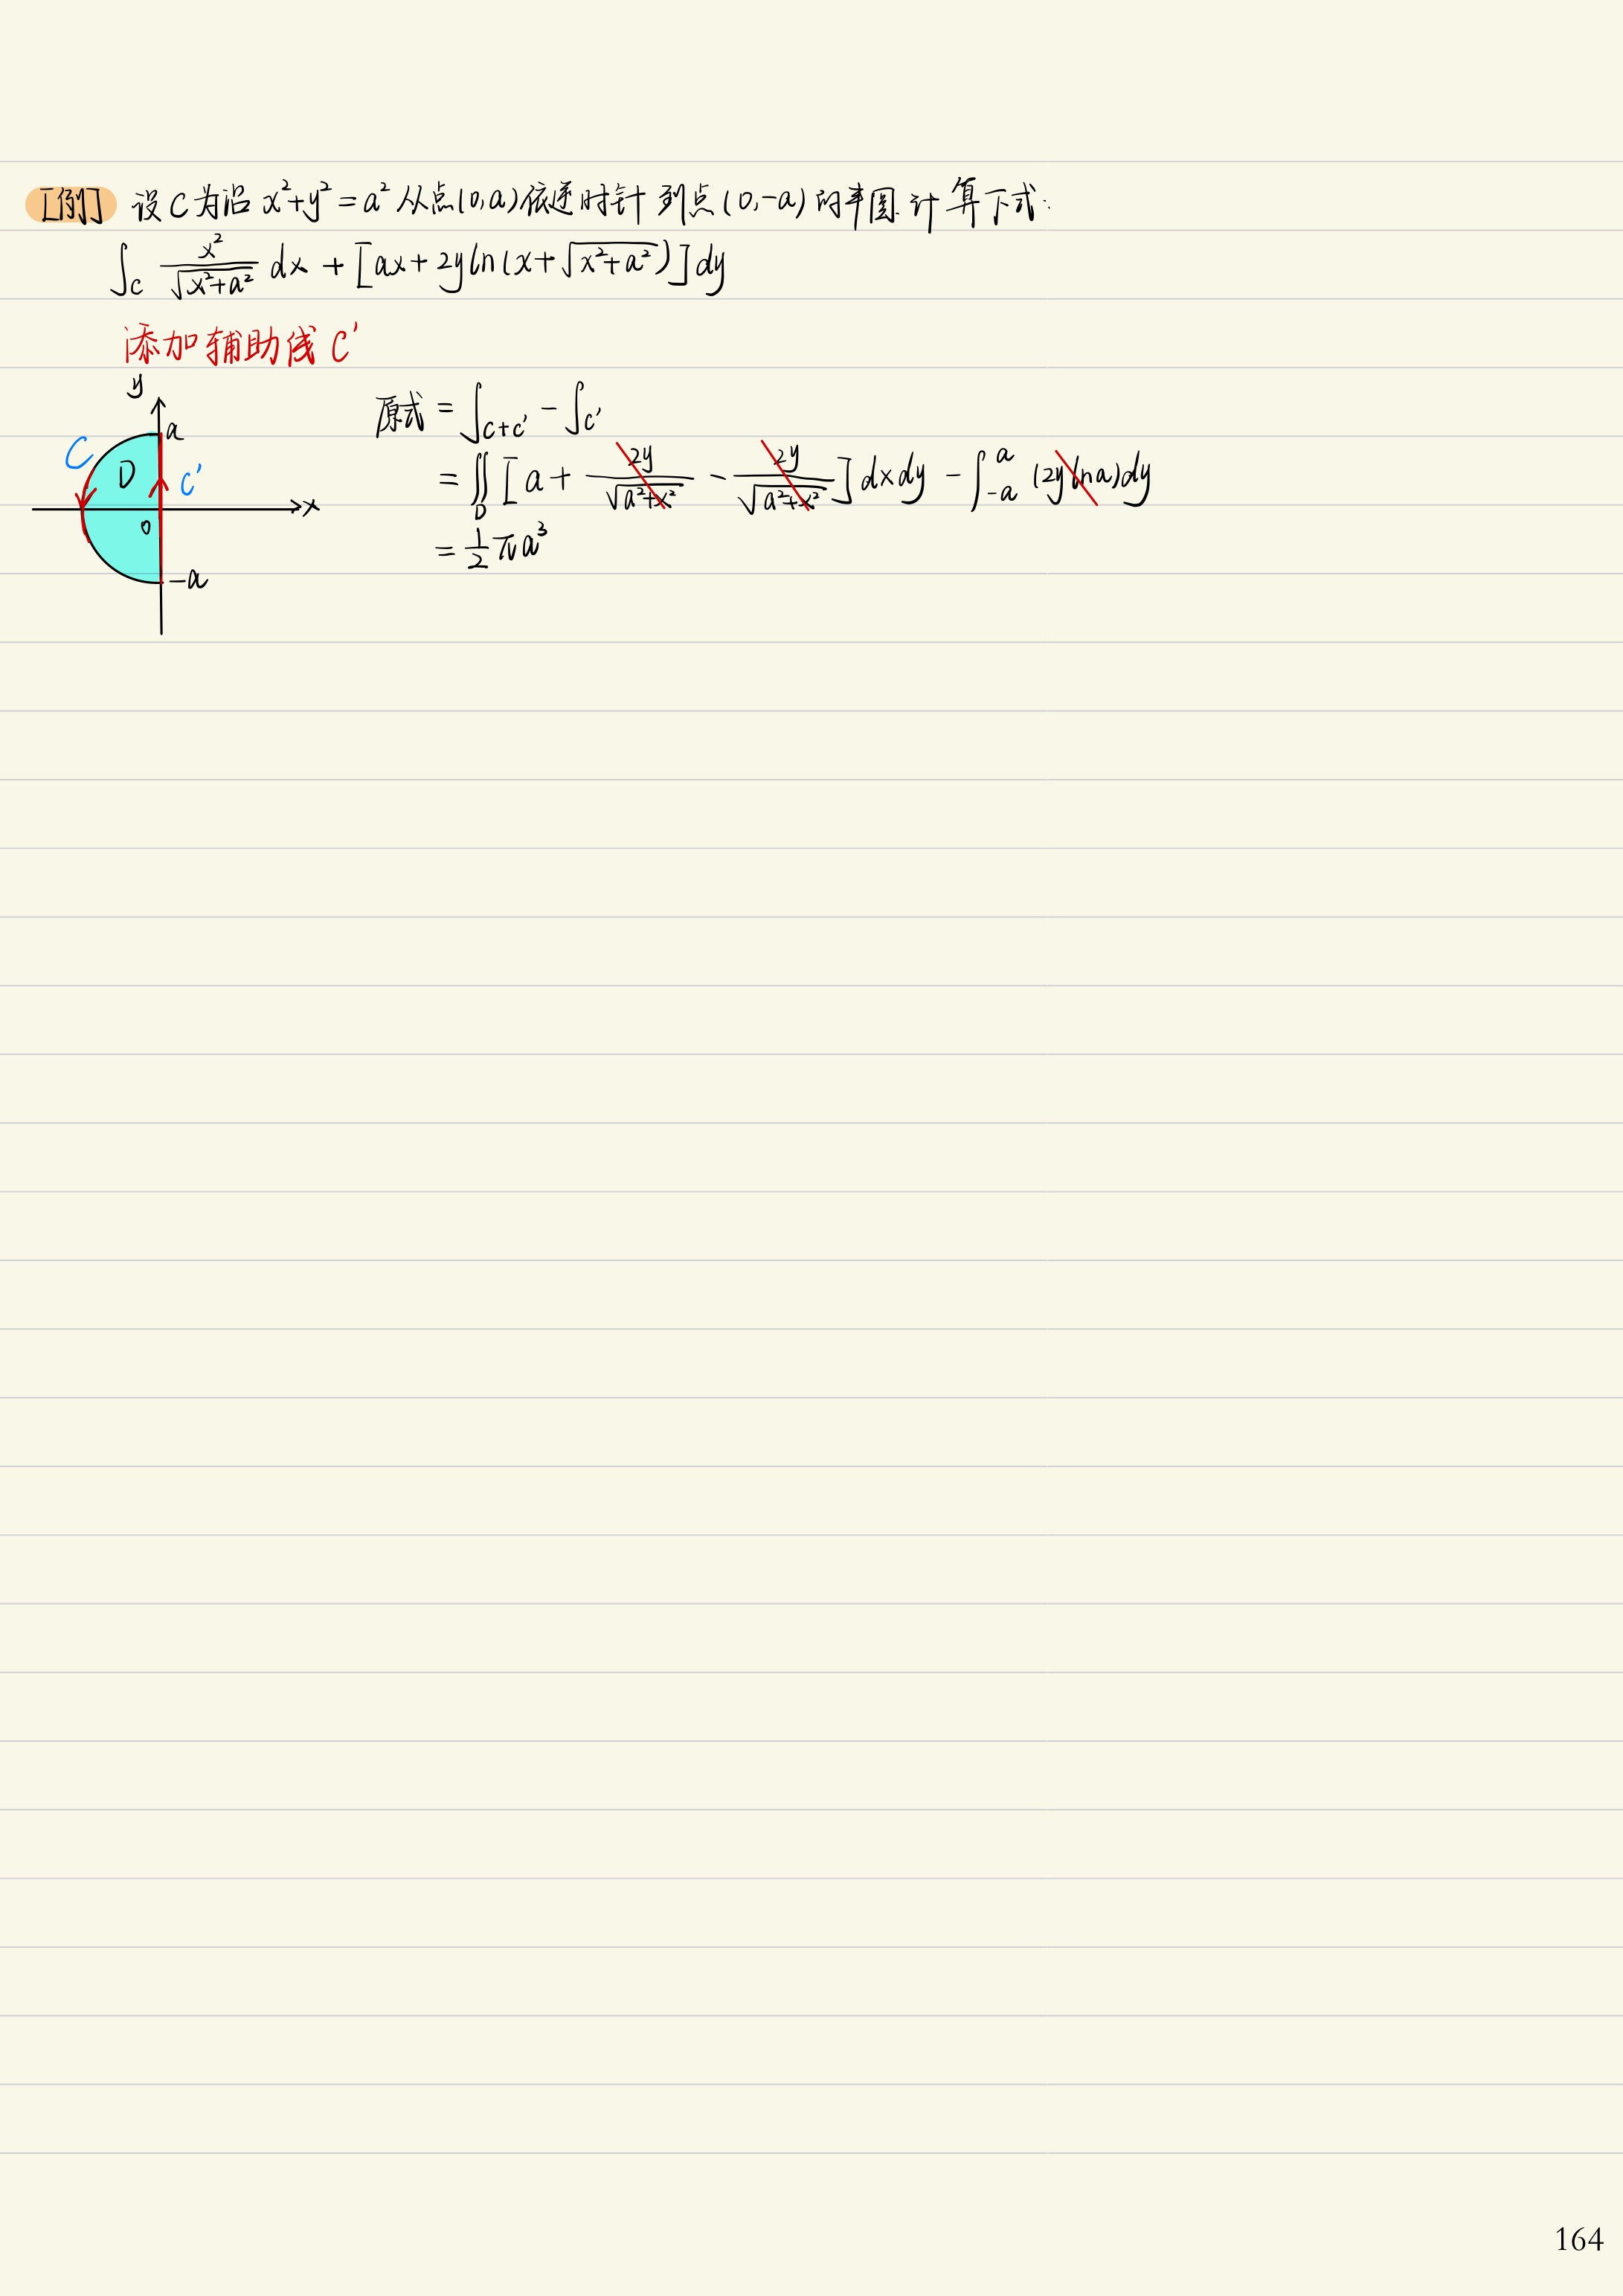 [例] 设C为沿 x²+y²=a² 从点(0,a)依逆时针到点(0,-a)的半圆.计算下式:
∫_C x²/√(x²+a²) dx + [ax+2yln(x+√(x²+a²))]dy
添加辅助线C'
y
a
C
D
C'
x
0
-a
原式 = ∫_{C+C'} - ∫_{C'}
= ∬_D [a + 2y/√(a²+x²) - 2y/√(a²+x²)]dxdy - ∫_{-a}^{a} (2ylna)dy
= 1/2 πa³
164